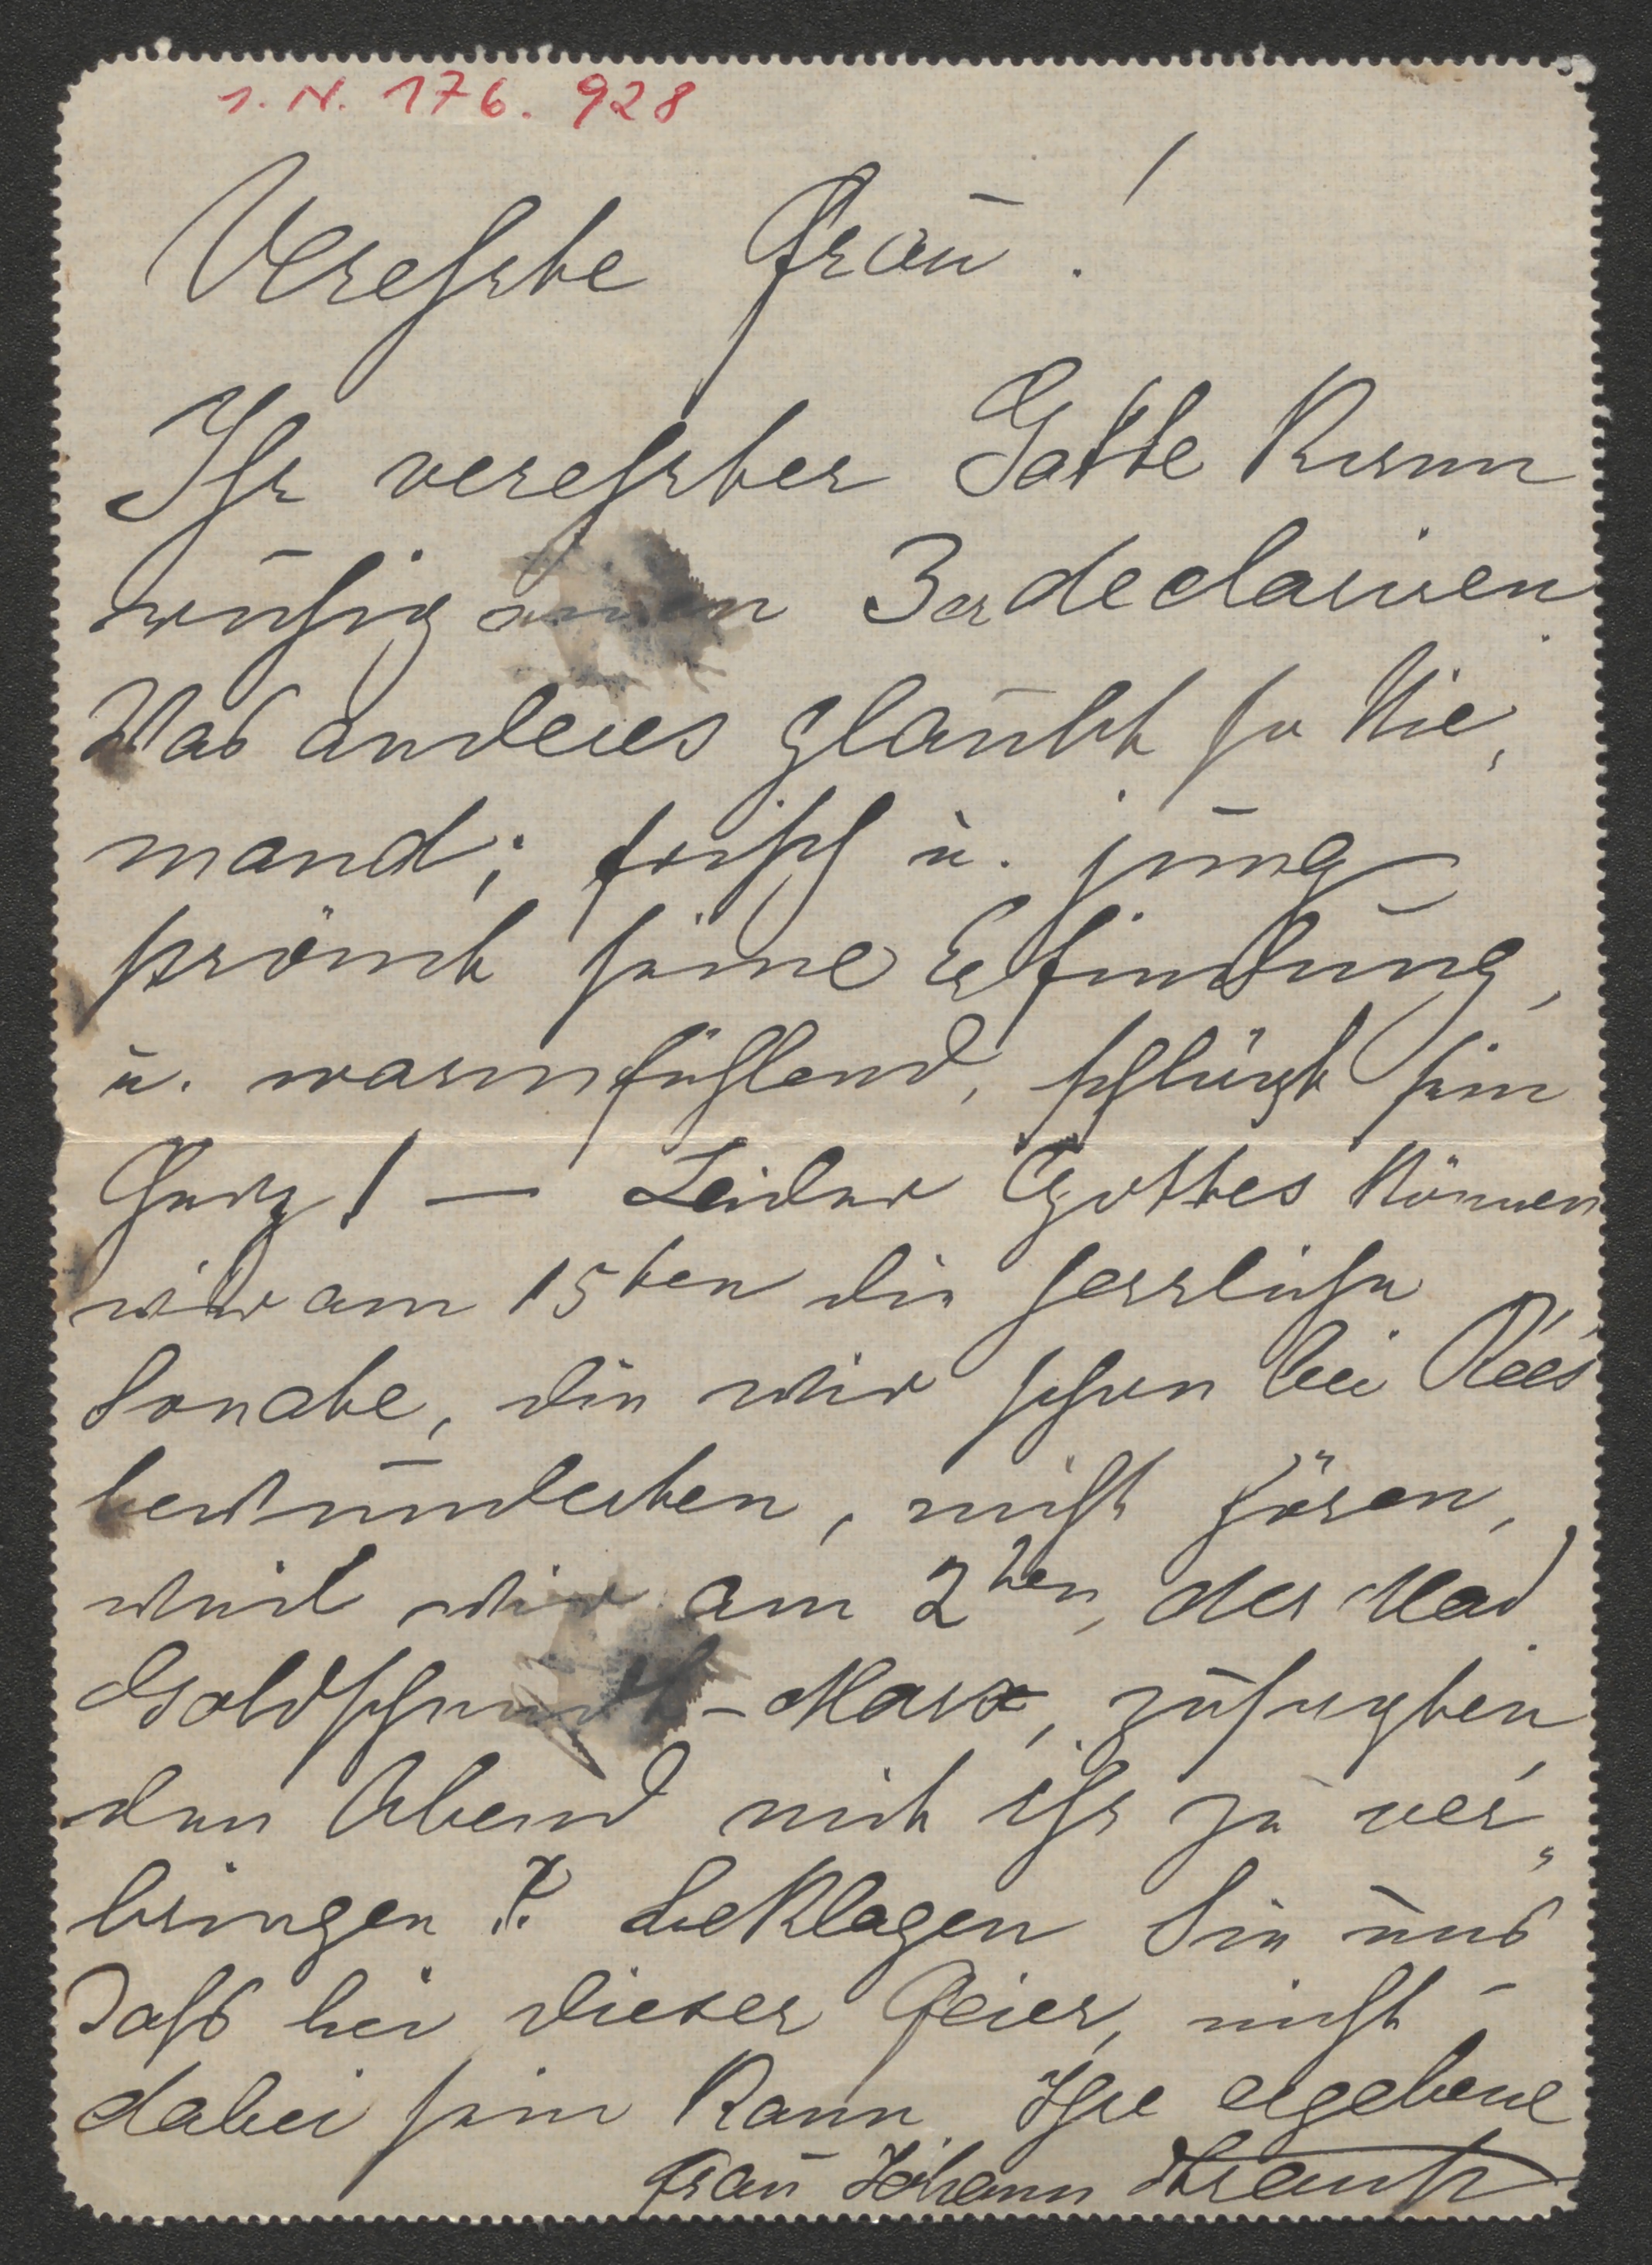 I. N. 176.928
Verehrte Frau!
Ihr verehrter Gatte kann
ruhig einen 3er declariren
Was anderes glaubt ja Nie,
mand; frisch u. jung
strömt seine Erfindung,
u. warmfühlend, schlägt sein
Herz! — Leider Gottes können
wir am 15ten die herrliche
Sonate, die wir schon bei Rées
bewunderten, nicht hören,
weil wir am 2ten, der Mad.
Goldschmidt-Marx, zusagten
den Abend mit ihr zu ver„
bringen!? beklagen Sie uns
daß bei dieser Feier, nicht
dabei sein kann Ihre ergebene
Frau Johann Strauß